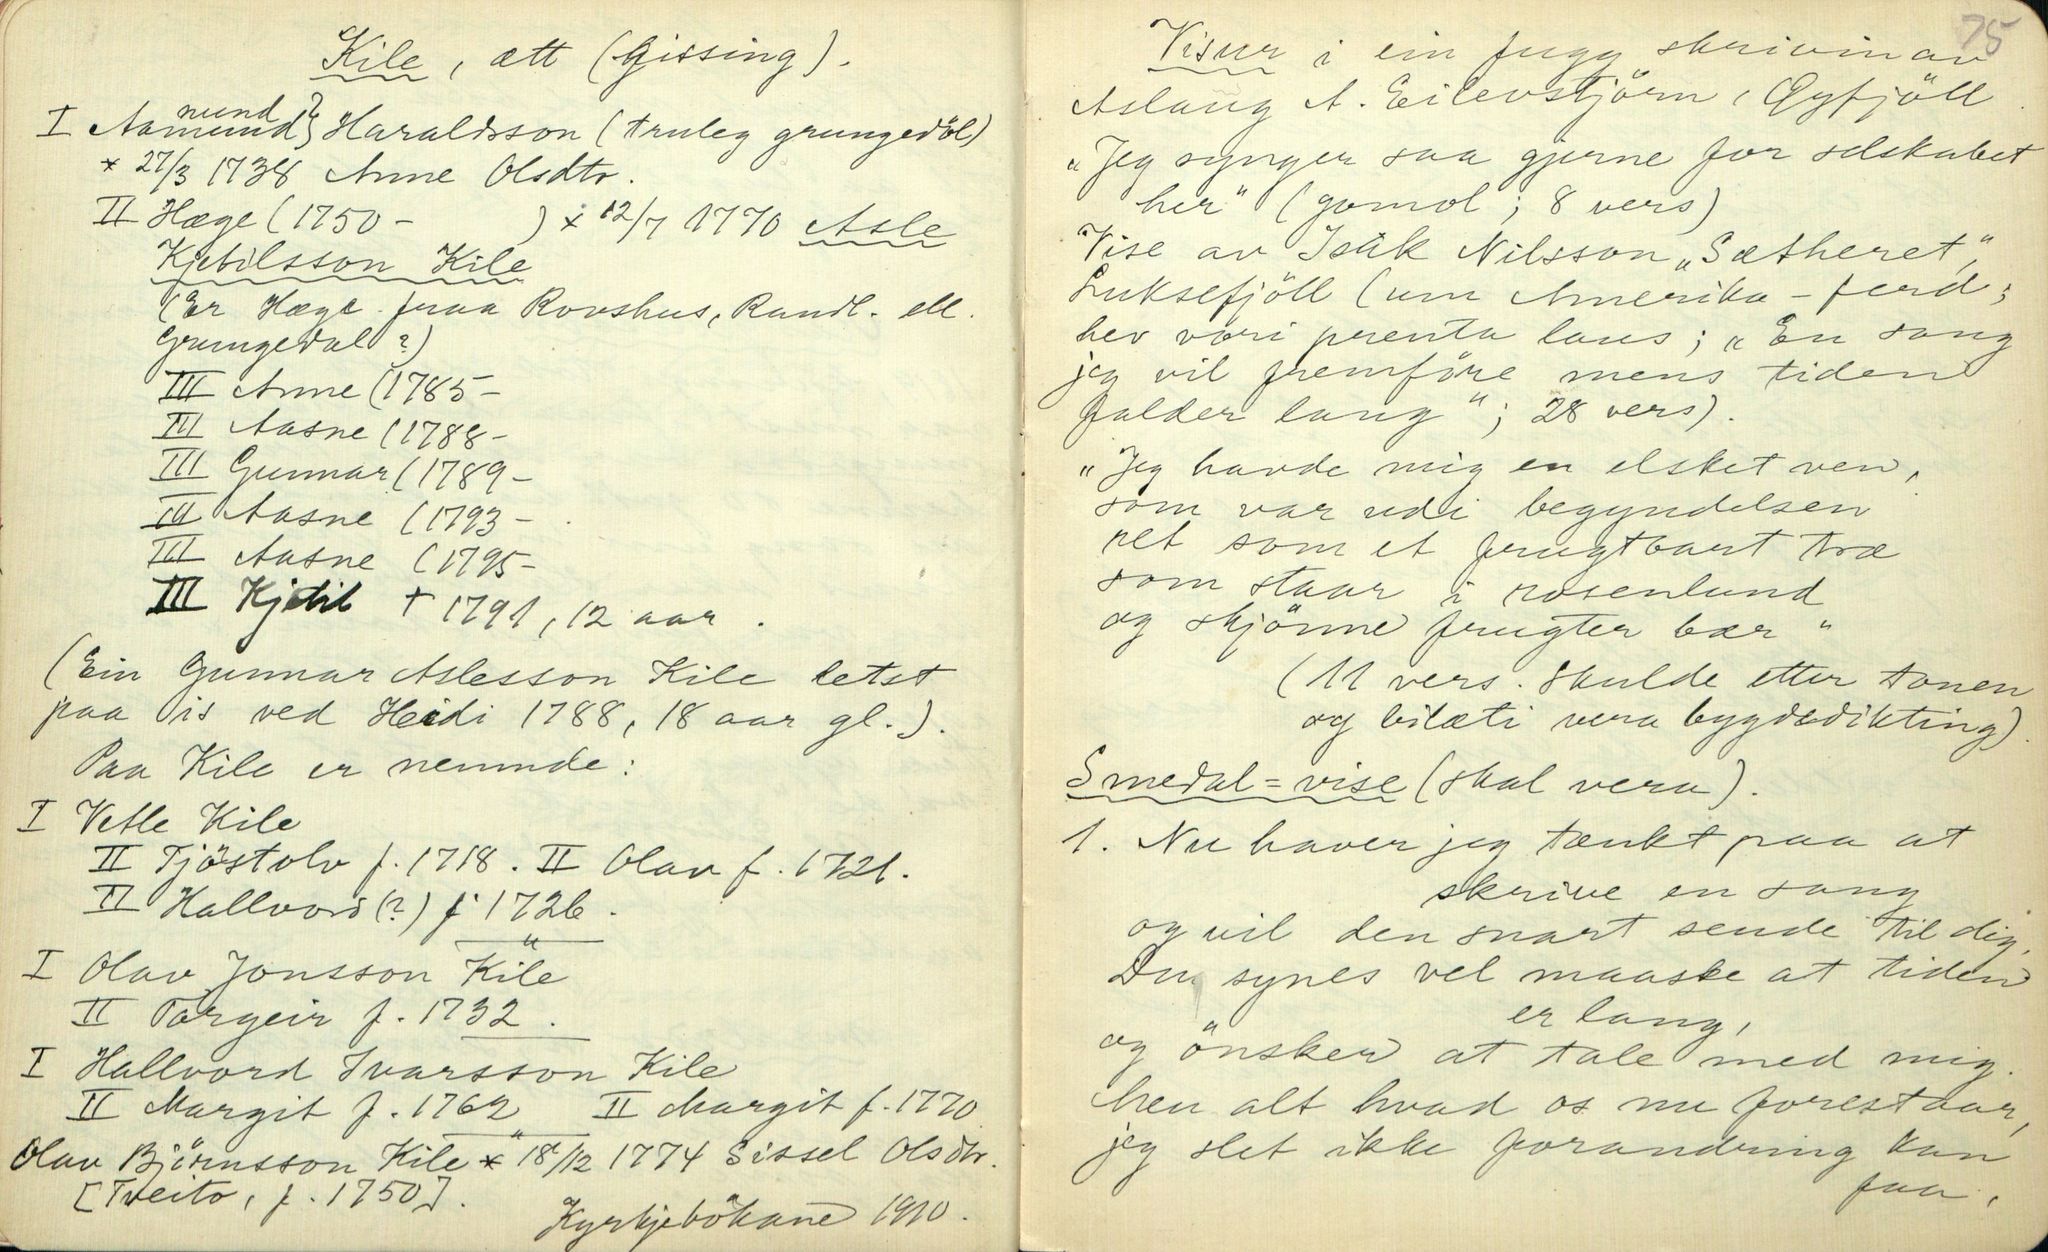 Kile, ætt (Gissing).
I Aamund} Haraldsson (truleg grungedöl)
nund ?
* 27/3 1738 Anne Olsdtr.
II Hæge (1750 - ) x 12/7 1770 Asle
Kjetilsson Kile
(Er Hæge fraa Rovshus, Raudl. ell.
Grungedal?)
III Anne (1785 -
III Aasne (1788 -
III Gunnar (1789 -
III Aasne (1793 -
III Aasne (1795 -
III Kjetil † 1791, 12 aar.
(Ein Gunnar Aslesson Kile letst
paa is ved Heidi 1788, 18 aar gl.).
Paa Kile er nemnde:
I Vetle Kile
II Tjöstolv f. 1718. II Olav f. 1721.
II Hallvord (?) f. 1726.
"
I Olav Jonsson Kile
II Torgeir f. 1732.
I Hallvord Ivarsson Kile
II Margit f. 1762 II Margit f. 1770
"
Olav Björnsson Kile * 18/12 1774 Sissel Olsdtr.
[Tveito, f. 1750].
Kyrkjebökane 1910.
75
Visur i ein fugg skrivin av
Aslaug A. Eilevstjörn, Öyfjöll.
"Jeg synger saa gjerne for selskabet
her" (gomol; 8 vers)
Vise av Isak Nilsson "Sætheret",
Luksefjöll (um Amerika-ferd;
hev vori prenta laus; "En sang
jeg vil fremföre mens tiden
falder lang"; 28 vers).
"Jeg havde mig en elsket ven,
som var udi begyndelsen
ret som et frugtbart træ
som staar i rosenlund
og skjönne frugter bær"
(11 vers. Skulde etter tonen
og bilæti vera bygdedikting).
Smedal=vise (skal vera).
1. Nu haver jeg tænkt paa at
skrive en sang
og vil den snart sende til dig,
Du synes vel maaske at tiden
er lang,
og önsker at tale med mig.
Men alt hvad os nu forestaar,
jeg slet ikke forandring kan
faa,